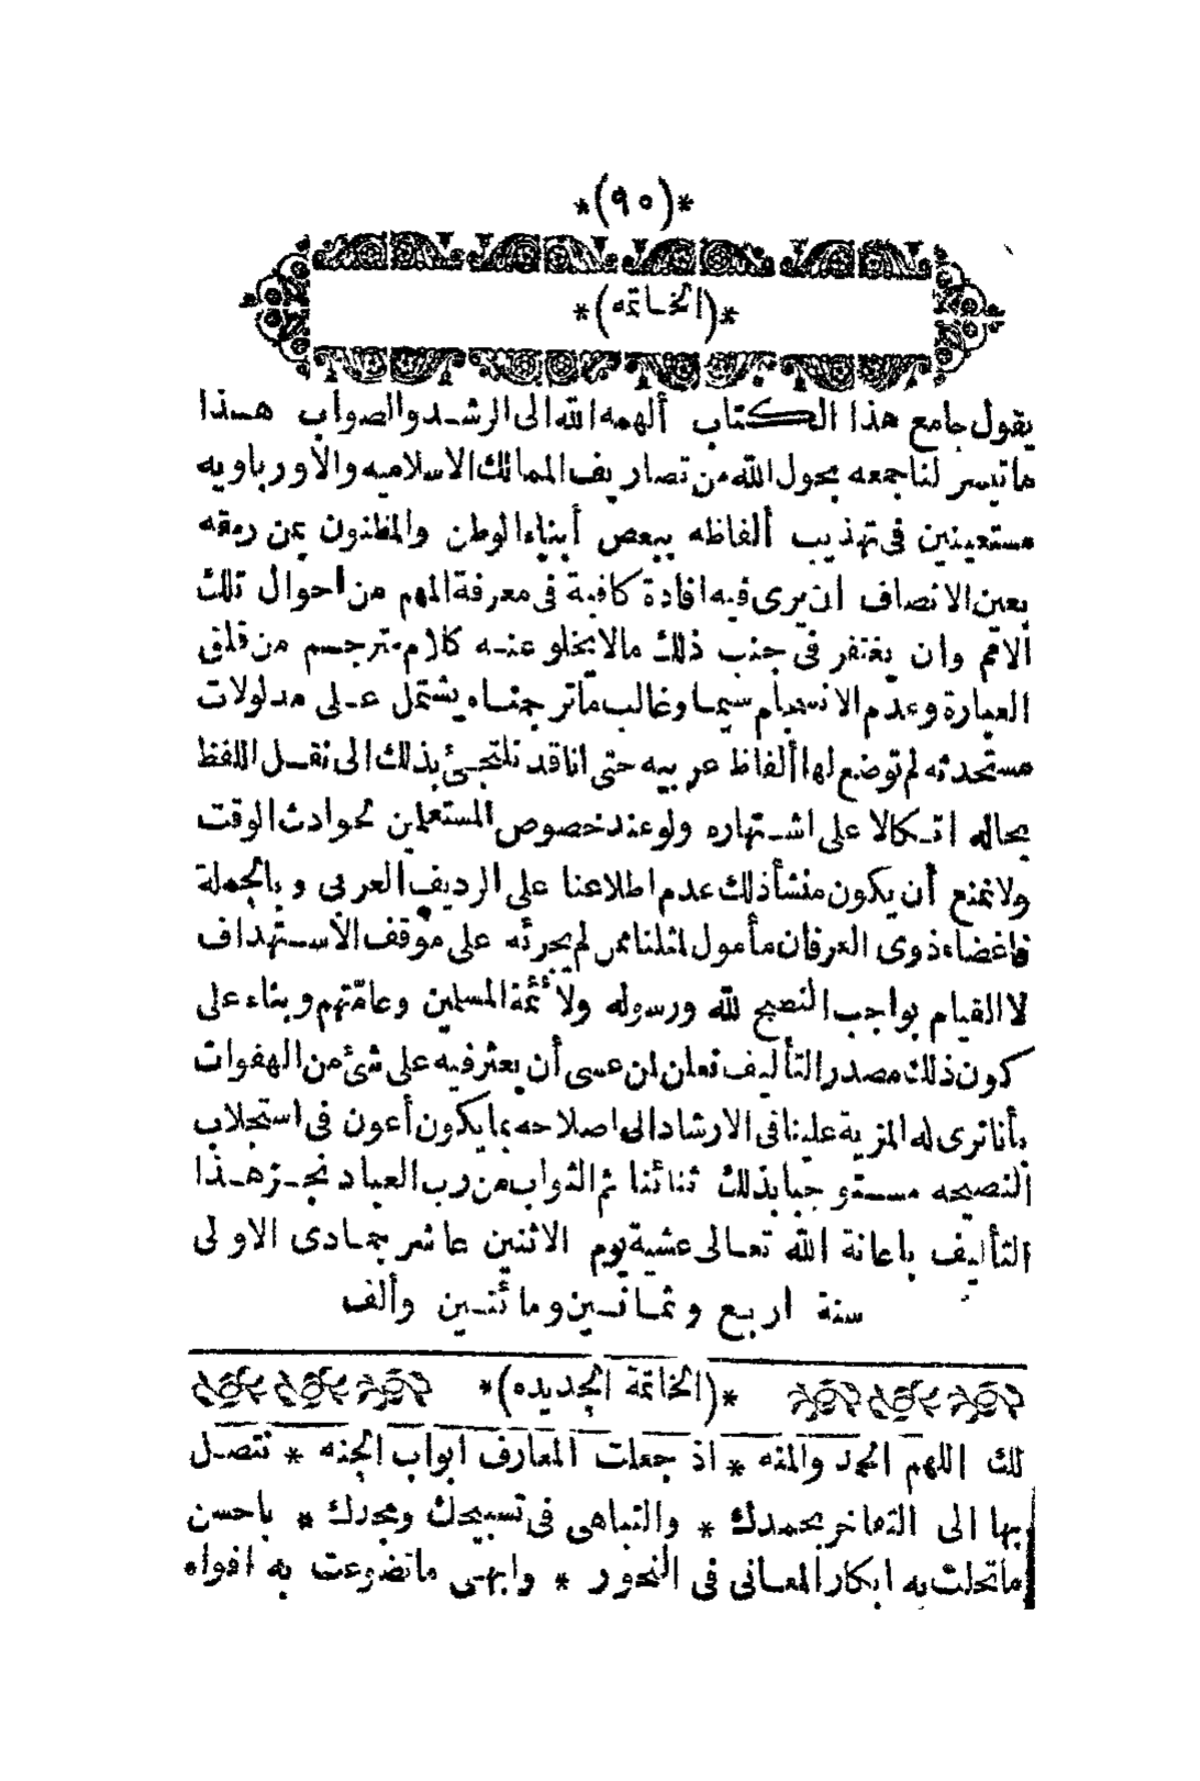 *(٩٠)*
*(الخاتمه)*
يقول جامع هذا الكتاب ألهمه الله الى الرشد والصواب هذا
ما تيسر لنا جمعه بحول الله من تصاريف الممالك الاسلاميه والأورباويه
مستعينين فى تهذيب ألفاظه ببعض أبناء الوطن والمظنون بمن رمقه
بعين الانصاف ان يرى فيه افادة كافية فى معرفة المهم من احوال تلك
الأمم وان يغتفر فى جنب ذلك مالا يخلو عنه كلام مترجم من قلق
العبارة وعدم الانسجام سيما وغالب ما ترجمناه يشتمل على مدلولات
مستحدثه لم توضع لها ألفاظ عربيه حتى اناقد نلتجئ بذلك الى نقل اللفظ
بحاله اتكالا على اشتهاره ولو عند خصوص المستعملين لحوادث الوقت
ولا نمنع أن يكون منشأ ذلك عدم اطلاعنا على الرديف العربى وبالجملة
فاغضاء ذوى العرفان مأمول لمثلنا ممن لم يجرئه على موقف الأستهداف
لا القيام بواجب النصح لله ورسوله ولأئمة المسلمين وعامّتهم وبناء على
كون ذلك مصدر التأليف نعلن لمن عسى أن يعثر فيه على شئ من الهفوات
بأنا نرى له المزية علينا فى الارشاد الى اصلاحه بما يكون أعون فى استجلاب
النصيحه مستوجبا بذلك ثنائنا ثم الثواب من رب العباد نجز هذا
التأليف باعانة الله تعالى عشية يوم الاثنين عاشر جمادى الاولى
سنة اربع وثمانين ومائتين وألف
*(الخاتمة الجديده)*
لك اللهم الحمد والمنه * اذ جعلت المعارف ابواب الجنه * نتصل
بها الى التفاخر بحمدك * والتباهى فى تسبيحك ومجدك * باحسن
ما تحلت به ابكار المعانى فى النحور * وابهى ما تضوعت به افواه